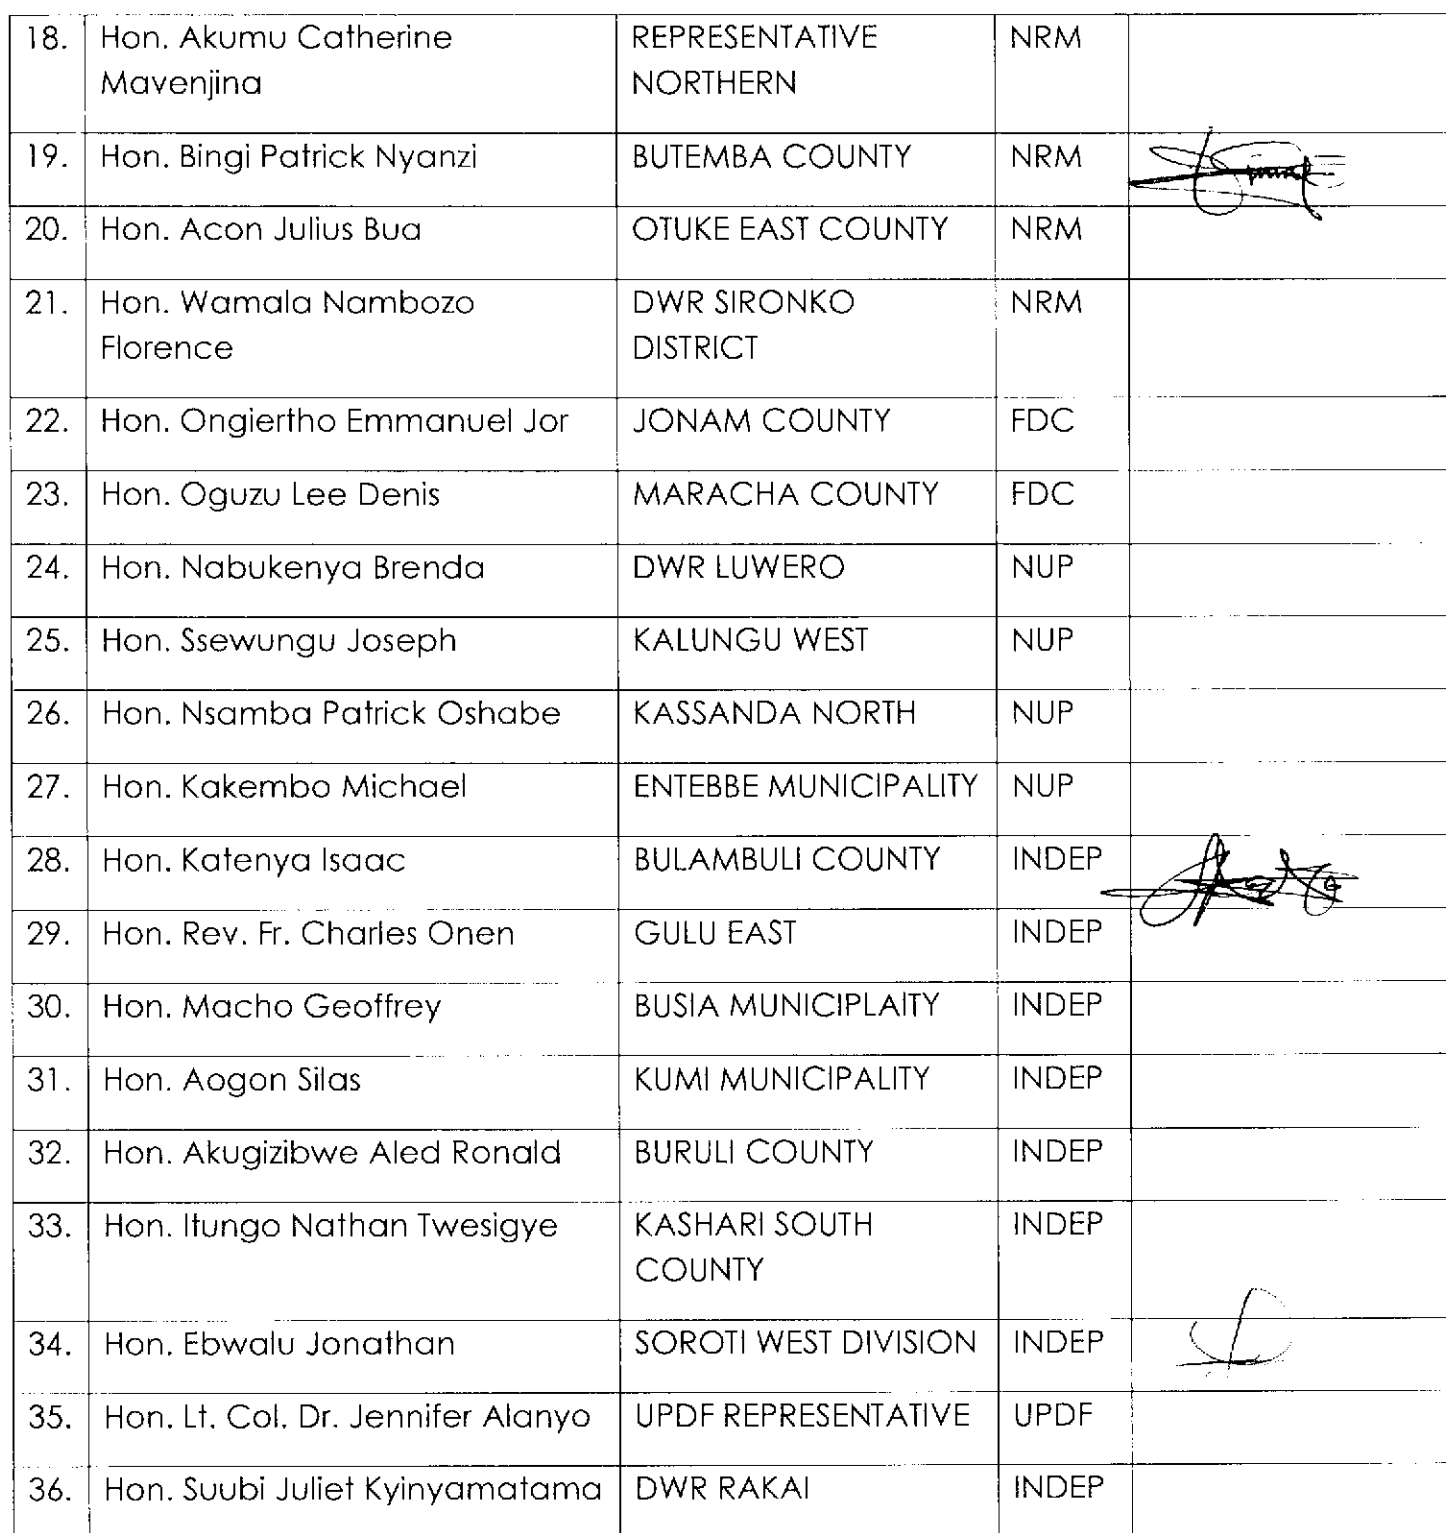 18. Hon. Akumu Catherine Mavenjina REPRESENTATIVE NORTHERN NRM
19. Hon. Bingi Patrick Nyanzi BUTEMBA COUNTY NRM
20. Hon. Acon Julius Bua OTUKE EAST COUNTY NRM
21. Hon. Wamala Nambozo Florence DWR SIRONKO DISTRICT NRM
22. Hon. Ongiertho Emmanuel Jor JONAM COUNTY FDC
23. Hon. Oguzu Lee Denis MARACHA COUNTY FDC
24. Hon. Nabukenya Brenda DWR LUWERO NUP
25. Hon. Ssewungu Joseph KALUNGU WEST NUP
26. Hon. Nsamba Patrick Oshabe KASSANDA NORTH NUP
27. Hon. Kakembo Michael ENTEBBE MUNICIPALITY NUP
28. Hon. Katenya Isaac BULAMBULI COUNTY INDEP
29. Hon. Rev. Fr. Charles Onen GULU EAST INDEP
30. Hon. Macho Geoffrey BUSIA MUNICIPLAITY INDEP
31. Hon. Aogon Silas KUMI MUNICIPALITY INDEP
32. Hon. Akugizibwe Aled Ronald BURULI COUNTY INDEP
33. Hon. Itungo Nathan Twesigye KASHARI SOUTH COUNTY INDEP
34. Hon. Ebwalu Jonathan SOROTI WEST DIVISION INDEP
35. Hon. Lt. Col. Dr. Jennifer Alanyo UPDF REPRESENTATIVE UPDF
36. Hon. Suubi Juliet Kyinyamatama DWR RAKAI INDEP